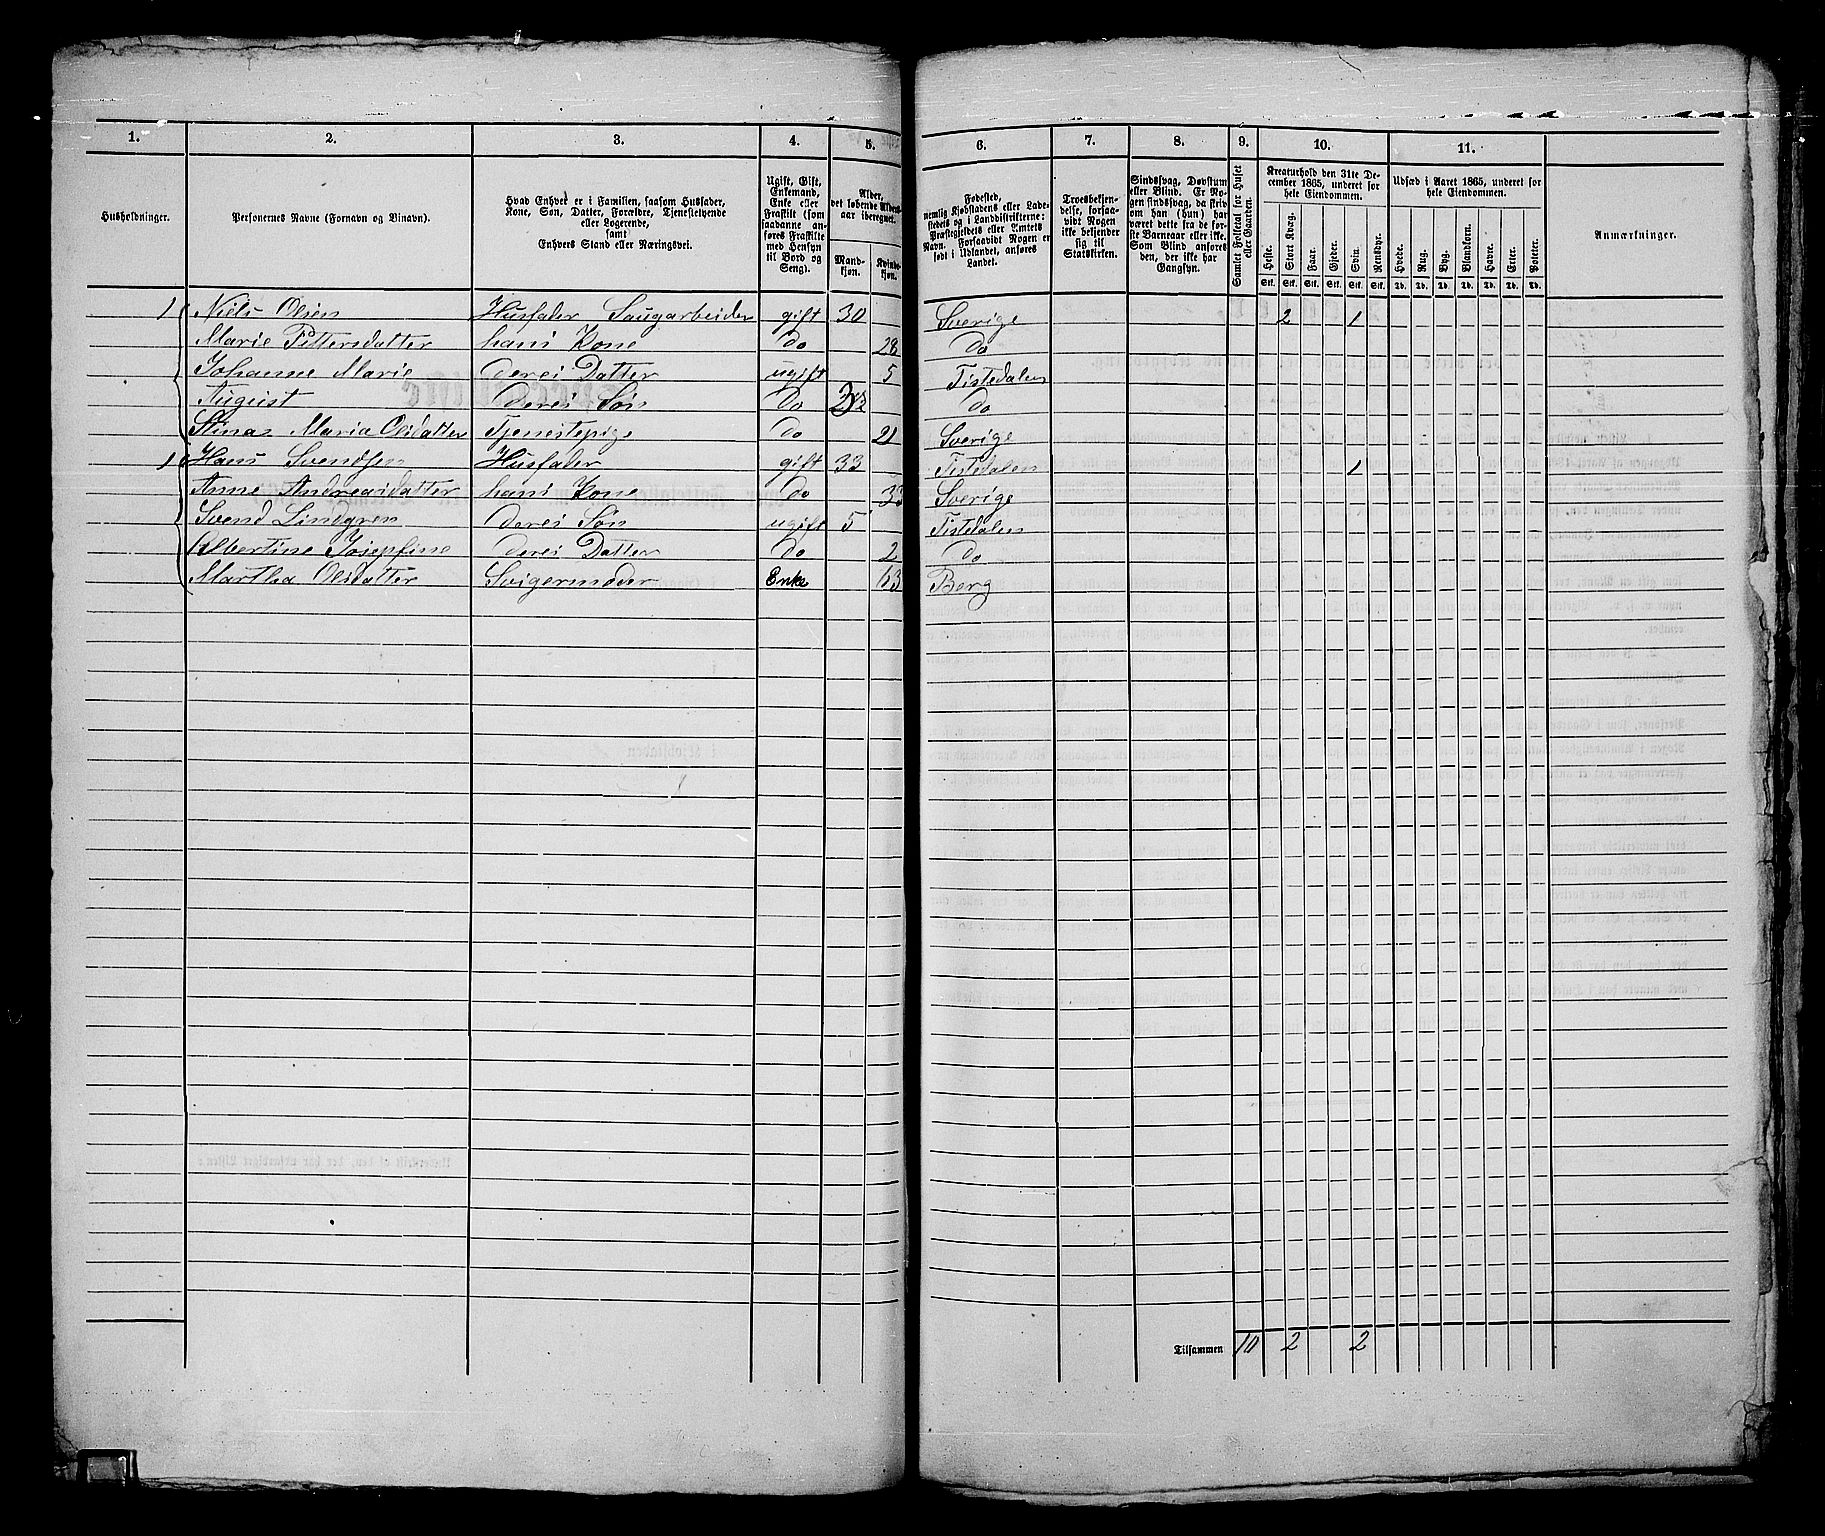 1. 2. 3. 4. 5. 6. 7. 8. 9. 10. 11.
Husholdninger.
Personernes Navne (Fornavn og Binavn).
Hvad Enhver er i Familien, saasom Husfader,
Kone, Søn, Datter, Forældre, Tjenestetyende
eller Logerende,
samt
Enhvers Stand eller Næringsvei.
Ugift, Gift,
Enkemand,
Enke eller
Fraskilt (som
saadanne an-
føres Fraskilte
med Hensyn
til Bord og
Seng).
Alder,
det løbende Alders-
aar iberegnet.
Mand-
kjøn.
Kvinde-
kjøn.
Fødested,
nemlig Kjøbstadens eller Lade-
stedets og i Landdistrikterne:
Præstegjeldets eller Amtets
Navn. Forsaavidt Nogen er
født i Udlandet, anføres
Landet.
Troesbekjen-
delse, forsaa-
vidt Nogen
ikke bekjender
sig til
Statskirken.
Sindssvag, Døvstum
eller Blind. Er No-
gen sindssvag, da skriv
om han (hun) har
været dette fra de før-
ste Barneaar eller ikke.
Som Blind anføres
den, der ikke har
Gangsyn.
Samlet Folketal for Huset
eller Gaarden.
Kreaturhold den 31te De-
cember 1865, underet for
hele Eiendommen.
Heste. Stort Kvæg. Faar. Gjeder. Sviin. Rensdyr.
Stk. Stk. Stk. Stk. Stk. Stk.
Udsæd i Aaret 1865, underet for
hele Eiendommen.
Hvede. Rug. Byg. Blandkorn. Havre. Erter. Poteter.
Td. Td. Td. Td. Td. Td. Td.
Anmærkninger.
1 Niels Olsen Husfader Saugarbeider gift 30 Sverige 2 1
Marie Pettersdatter hans Kone do 28 do
Johanne Marie deres Datter ugift 5 Tistedalen
August deres Søn do do
Stina Maria Olsdatter Tjenestepige do 21 Sverige
1 Hans Svendsen Husfader gift 33 Tistedalen 1
Anne Andreasdatter hans Kone do 33 Sverige
Svend Lindgren deres Søn ugift 5 Tistedalen
Albertine Josephine deres Datter do 2 do
Martha Olsdatter Svigermoder Enke 63 Berg
Tilsammen 10 2 2